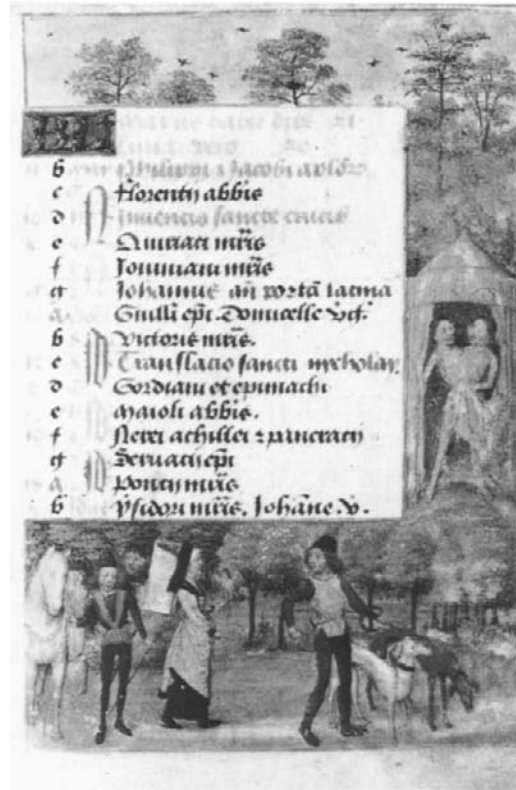 KL
b Philippi & Jacobi aplõr.
c Florentij abbis
d Inuencio sancte crucis
e Quiriaci mr̃is
f Iouiniani mr̃is
g Johannis añ portã latina
a Guill̃i ep̃i. Domicelle
b Victoris mr̃is.
c Translacio sancti nycholay.
d Gordiani et epimachi
e Maioli abbis.
f Nerei achillei z pancracij
g Seruacij ep̃i
a Poncij mr̃is
b ysidori mr̃is. Johãne v.